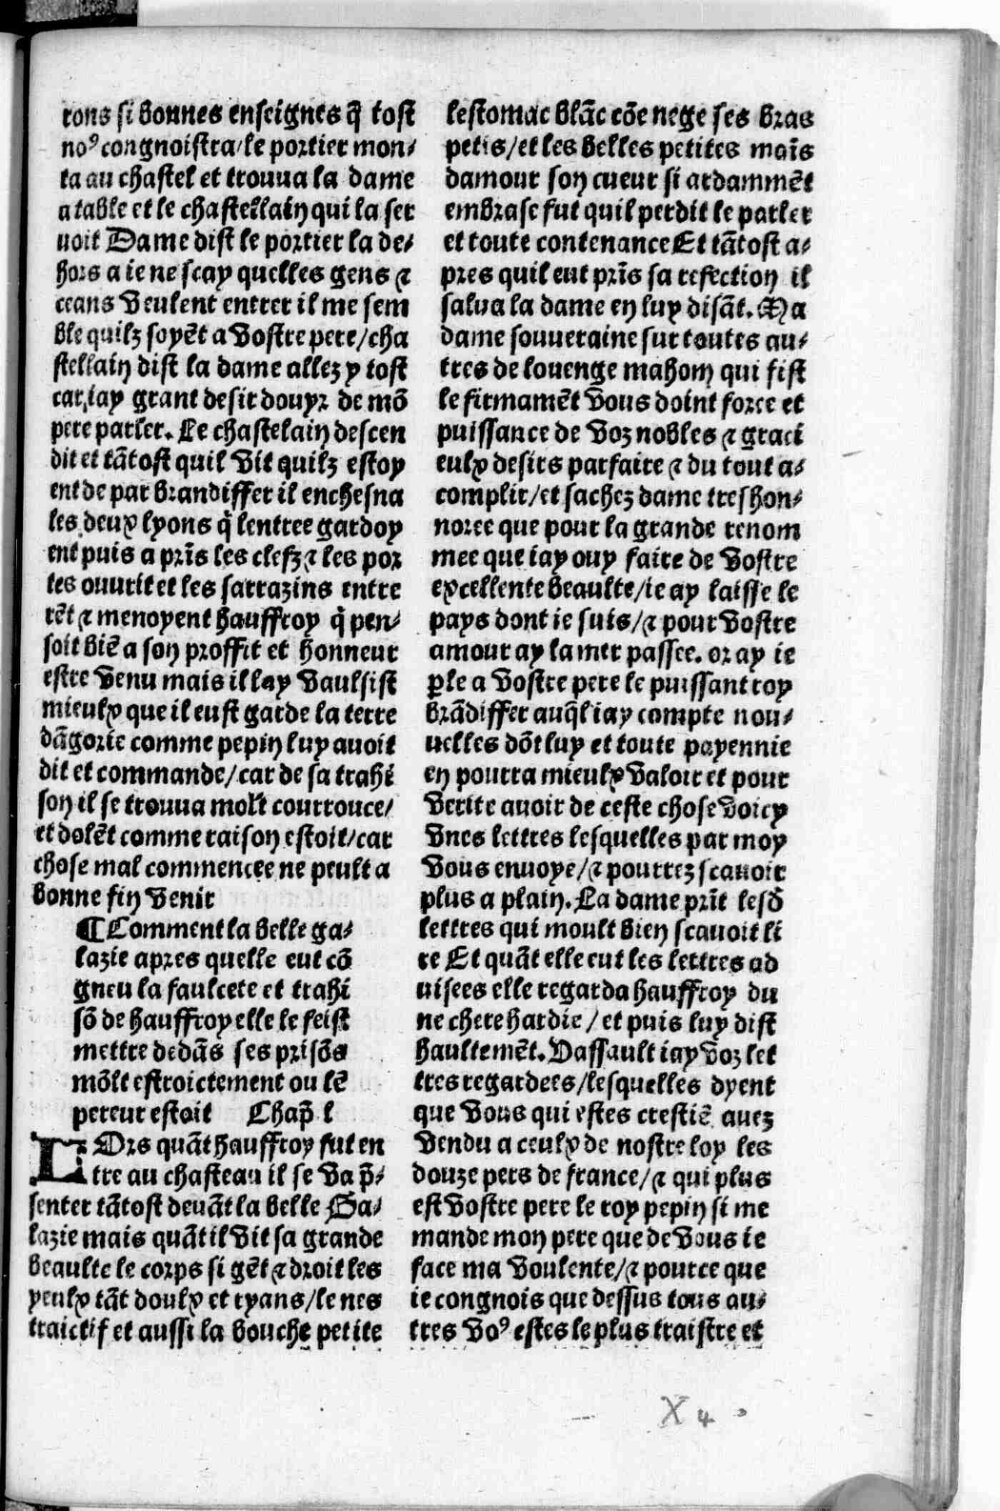 rons si bonnes enseignes q̃ tost
noꝰ congnoistra/le portier mon/
ta au chastel et trouva la dame
a table et le chastellain qui la ser
uoit Dame dist le portier la de/
hors a ie ne scay quelles gens ⁊
ceans veulent entrer il me sem
ble quilz soyẽt a vostre pere/cha
stellain dist la dame allez y tost
car iay grant desir douyr de mõ
pere parler. Le chastelain descen
dit et tãtost quil vit quilz estoy
ent de par brandiffer il enchesna
les deux lyons q̃ lentree gardoy
ent puis a prĩs les clefz ⁊ les por
tes ouurit et les sarrazins entre
rẽt ⁊ menoyent hauffroy q̃ pen/
soit biẽ a son proffit et honneur
estre venu mais il lay vaulsist
mieulx que il eust garde la terre
dãgorie comme pepin luy auoit
dit et commande/car de sa trahi
son il se trouua molt courrouce/
et dolẽt comme raison estoit/car
chose mal commencee ne peult a
bonne fin venir
¶ Comment la belle ga/
lazie apres quelle eut cõ
gneu la faulcete et trahi
sõ de hauffroy elle le feist
mettre dedãs ses prisõs
mõlt estroictement ou lẽ
pereur estoit Chap̃ l
LOrs quãt hauffroy fut en
tre au chasteau il se va p̃/
senter tãtost deuãt la belle Ga/
lazie mais quãt il vit sa grande
beaulte le corps si gẽt ⁊ droit les
yeulx tãt doulx et ryans/le nes
traictif et aussi la bouche petite
lestomac blãc cõe nege ses bras
petis/et les belles petites maĩs
damour son cueur si ardammẽt
embrase fut quil perdit le parler
et toute contenance Et tãtost a/
pres quil eut prĩs sa refection il
salua la dame en luy disãt. Ma
dame souueraine sur toutes au/
tres de louenge mahom qui fist
le firmamẽt vous doint force et
puissance de voz nobles ⁊ graci
eulx desirs parfaire ⁊ du tout a/
complir/et sachez dame treshon/
noree que pour la grande renom
mee que iay ouy faire de vostre
excellente beaulte/ie ay laisse le
pays dont ie suis/⁊ pour vostre
amour ay la mer passee. or ay ie
ꝑle a vostre pere le puissant roy
brãdiffer auq̃l iay compte nou/
uelles dõt luy et toute payennie
en pourra mieulx valoir et pour
verite auoir de ceste chose voicy
vnes lettres lesquelles par moy
vous enuoye/⁊ pourrez scauoir
plus a plain. La dame prĩt lesd̃
lettres qui moult bien scauoit li
re Et quãt elle eut les lettres ad
uisees elle regarda hauffroy du
ne chere hardie/et puis luy dist
haultemẽt. Vassault iay voz let
tres regardees/lesquelles dyent
que vous qui estes crestiẽ auez
vendu a ceulx de nostre loy les
douze pers de france/⁊ qui plus
est vostre pere le roy pepin si me
mande mon pere que de vous ie
face ma voulente/⁊ pource que
ie congnois que dessus tous au/
tres voꝰ estes le plus traistre et
X 4